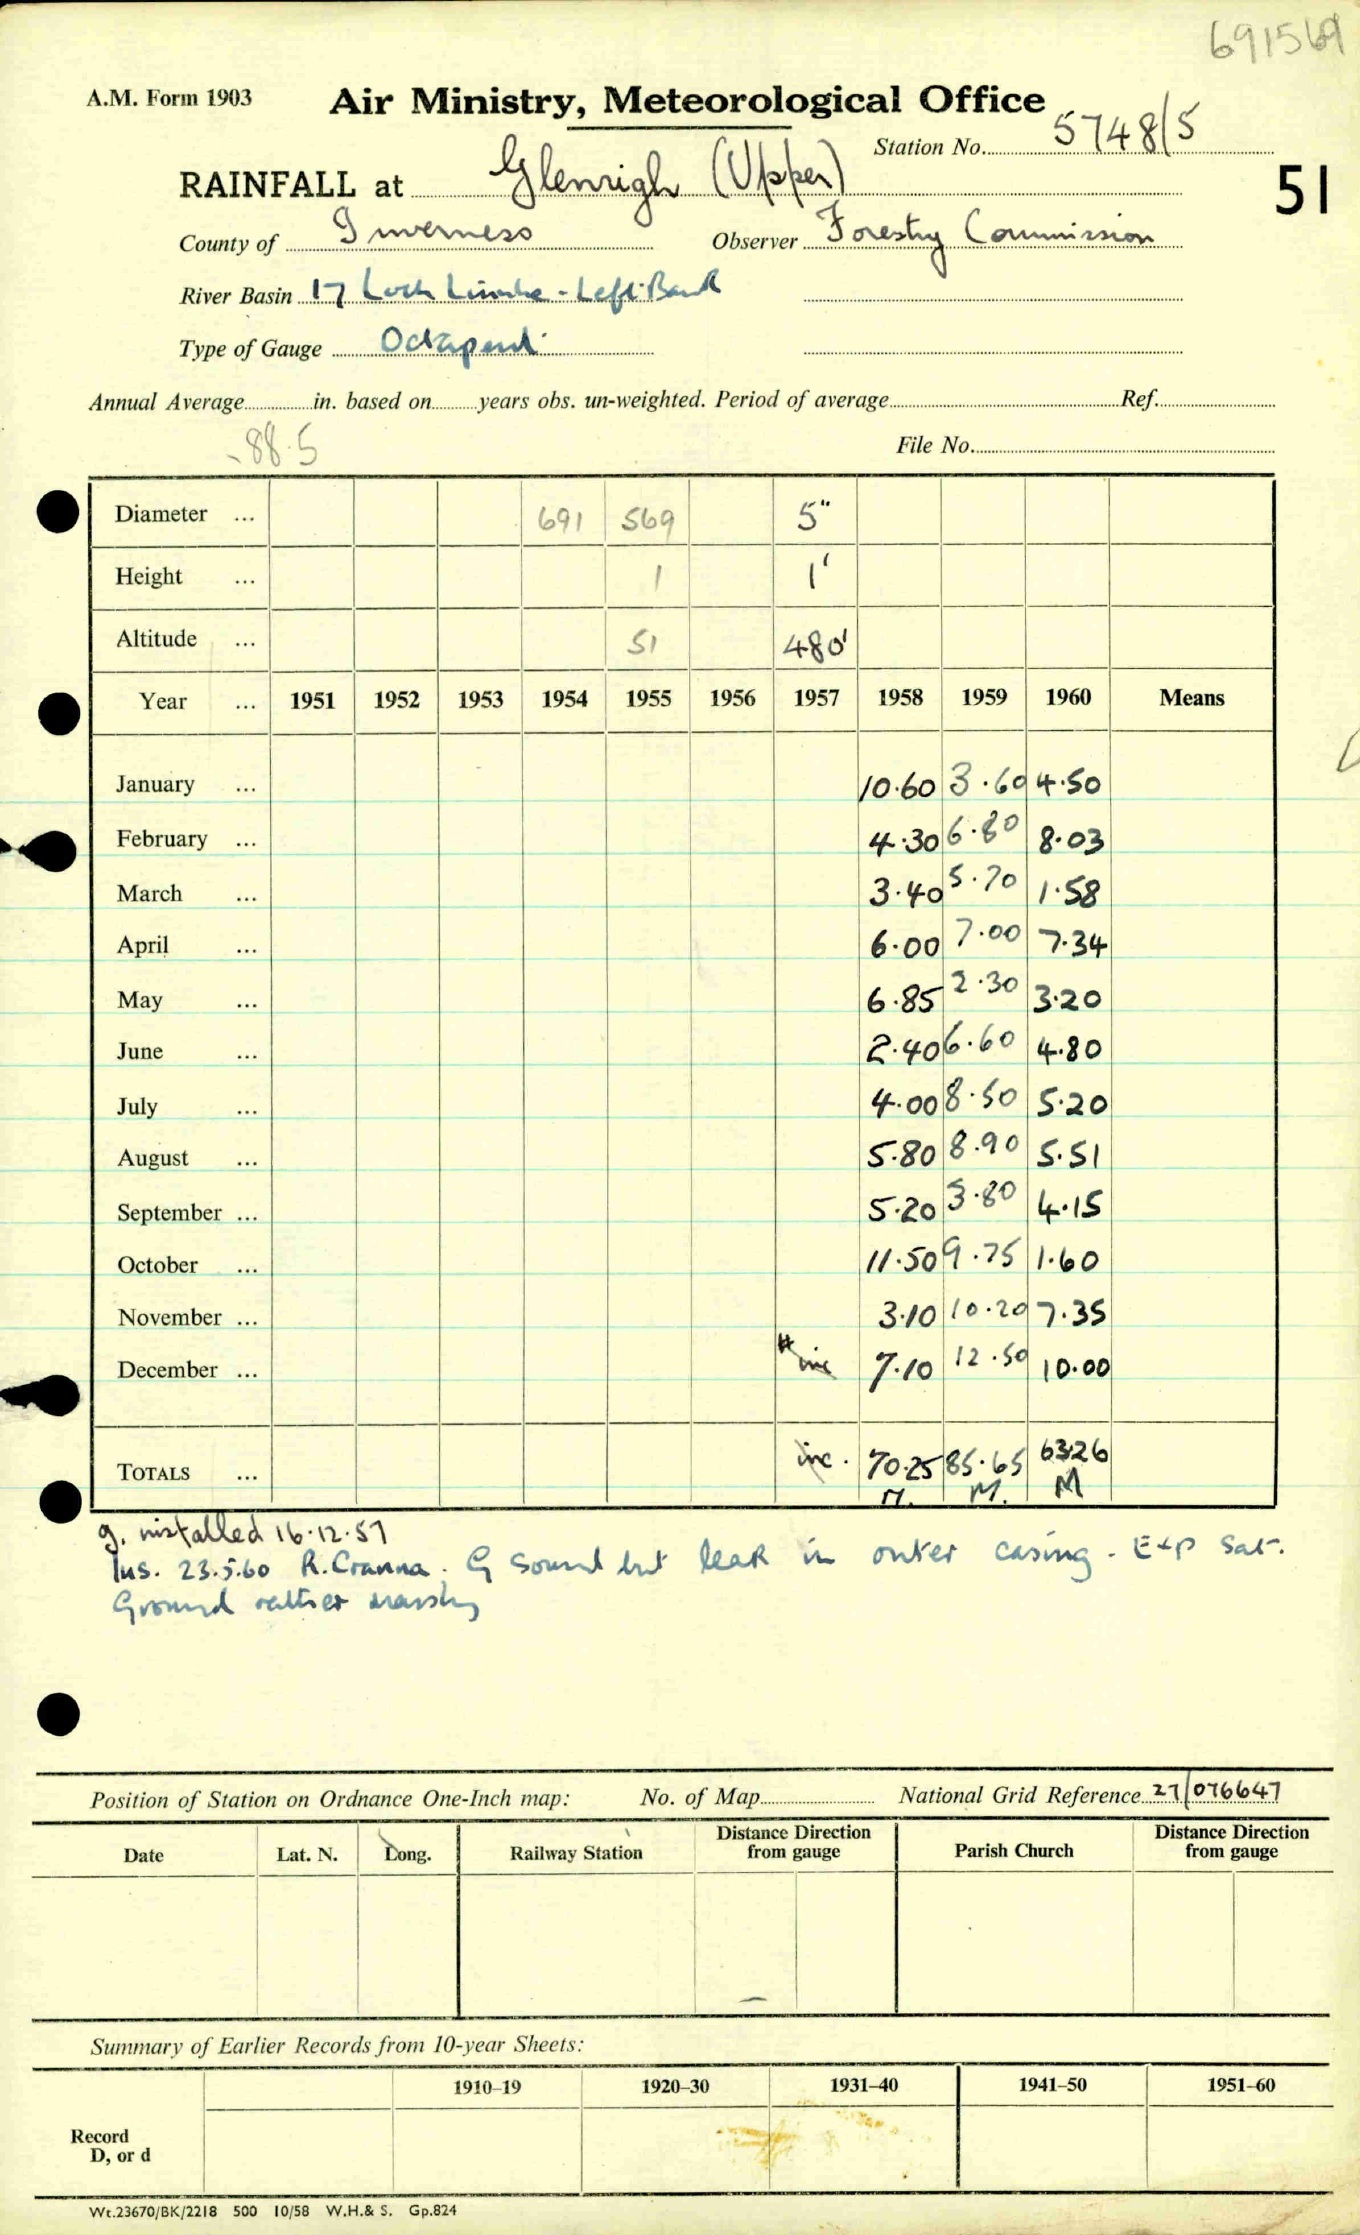 691569
A.M. Form 1903 Air Ministry, Meteorological Office
Station No. 5748/5
RAINFALL at Glenrigh (Upper) 51
County of Inverness Observer Forestry Commission
River Basin 17 Loch Linnhe - Left Bank
Type of Gauge Octapent
Annual Average in. based on years obs. un-weighted. Period of average Ref.
88.5 File No.
Diameter ... 691 569 5"
Height ... 1 1'
Altitude ... 51 480'
Year ... 1951 1952 1953 1954 1955 1956 1957 1958 1959 1960 Means
January ... 10.60 3.60 4.50
February ... 4.30 6.80 8.03
March ... 3.40 5.70 1.58
April ... 6.00 7.00 7.34
May ... 6.85 2.30 3.20
June ... 2.40 6.60 4.80
July ... 4.00 8.50 5.20
August ... 5.80 8.90 5.51
September ... 5.20 3.80 4.15
October ... 11.50 9.75 1.60
November ... 3.10 10.20 7.35
December ... inc 7.10 12.50 10.00
TOTALS ... inc. 70.25 85.65 63.26
M. M. M
g. installed 16.12.57
Ins. 23.5.60 R. Cranna. G sound but leak in outer casing. E+P Sat.
Ground rather marshy
Position of Station on Ordnance One-Inch map: No. of Map National Grid Reference 27/076647
Date Lat. N. Long. Railway Station Distance Direction from gauge Parish Church Distance Direction from gauge
Summary of Earlier Records from 10-year Sheets:
1910–19 1920–30 1931–40 1941–50 1951–60
Record
D, or d
Wt.23670/BK/2218 500 10/58 W.H.& S. Gp.824